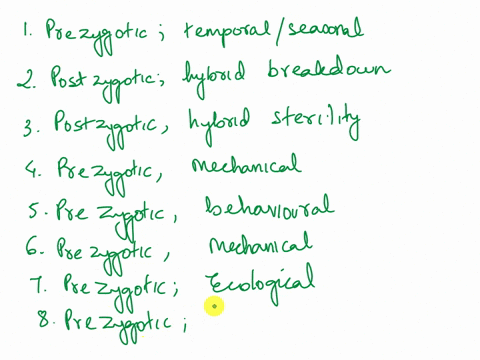 1. Prezygotic ; temporal/seasonal
2. Postzygotic; hybrid breakdown
3. Postzygotic, hybrid sterility
4. Prezygotic, mechanical
5. Prezygotic, behavioural
6. Prezygotic, mechanical
7. Prezygotic; Ecological
8. Prezygotic ;